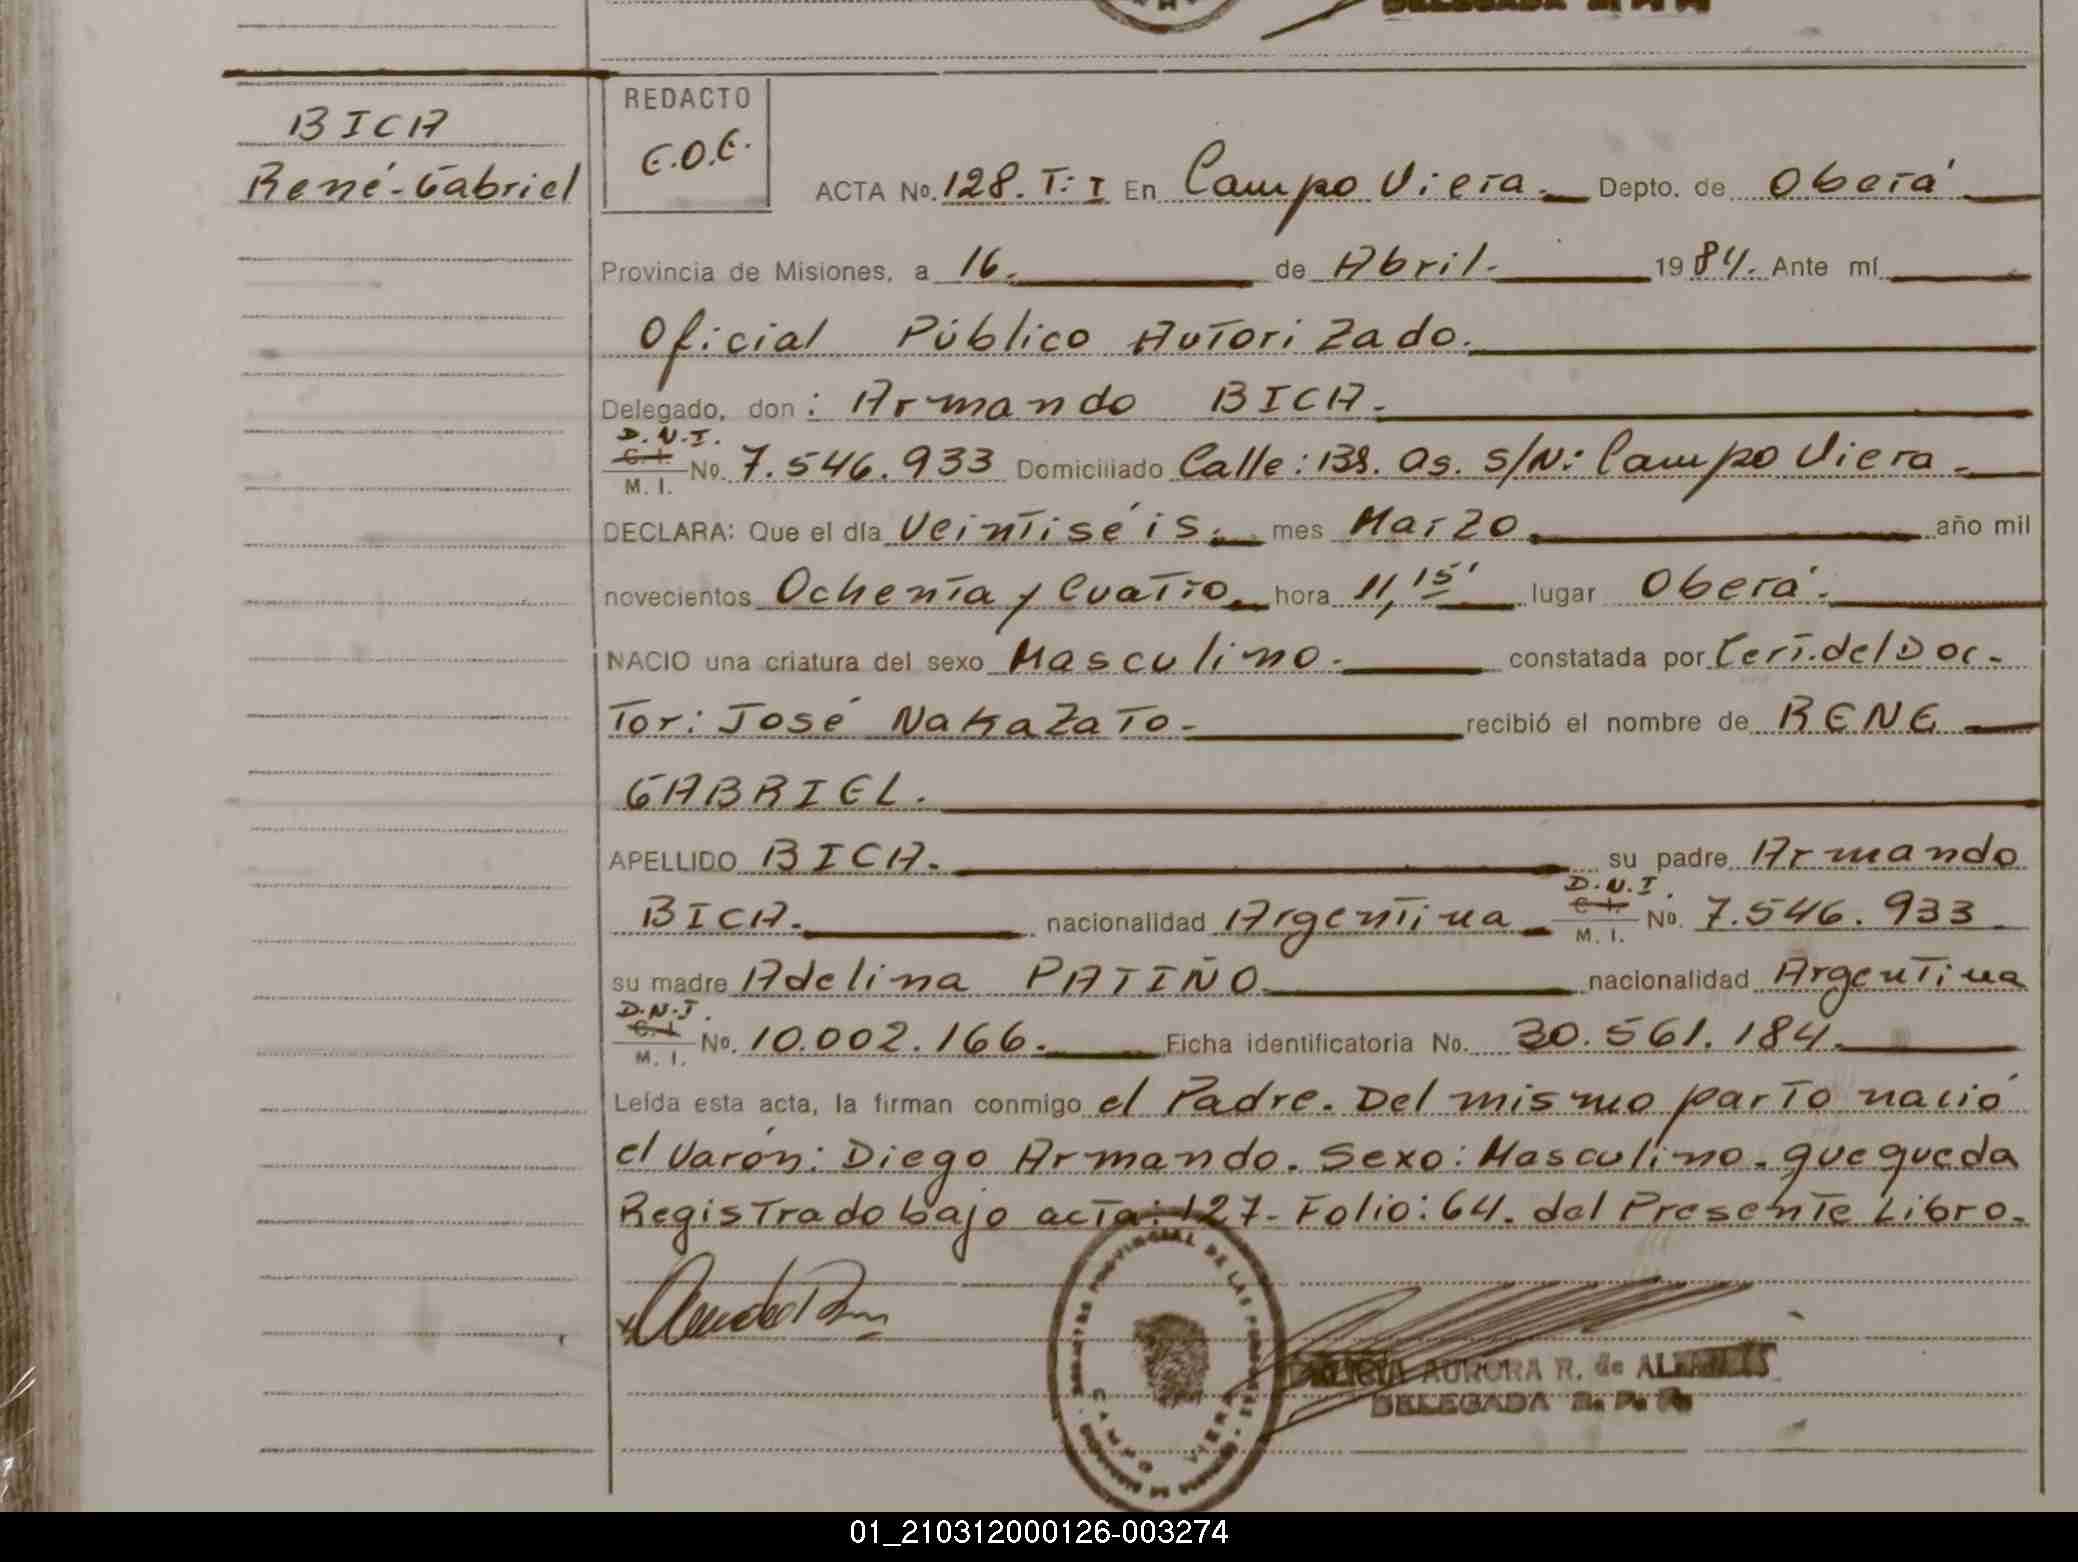 DELEGADA R. P. P.
BICA
René-Gabriel
REDACTO
E.O.E.
ACTA No. 128. T: I En Campo Viera.- Depto. de Oberá
Provincia de Misiones, a 16. de Abril. 1984. Ante mí
Oficial Público Autorizado.
Delegado, don: Armando BICA.
D.N.I.
C. I. No. 7.546.933 Domiciliado Calle: Bs. As. S/N: Campo Viera.
M. I.
DECLARA: Que el día Veintiséis. mes Marzo año mil
novecientos Ochenta y Cuatro. hora 11,15' lugar Oberá.
NACIO una criatura del sexo Masculino. constatada por Cert. del Doc-
tor: José Nakazato.- recibió el nombre de RENE
GABRIEL.
APELLIDO BICA. su padre Armando
D.N.I.
BICA. nacionalidad Argentina C. I. No. 7.546.933
M. I.
su madre Adelina PATIÑO nacionalidad Argentina
D.N.I.
C. I. No. 10.002.166. Ficha identificatoria No. 30.561.184.
M. I.
Leída esta acta, la firman conmigo el Padre. Del mismo parto nació
el Varón: Diego Armando. Sexo: Masculino. que queda
Registrado bajo acta: 127- Folio: 64. del Presente Libro.
PROVINCIAL DE LAS
CAMPO VIERA
AURORA R. de
DELEGADA R. P. P.
01_210312000126-003274